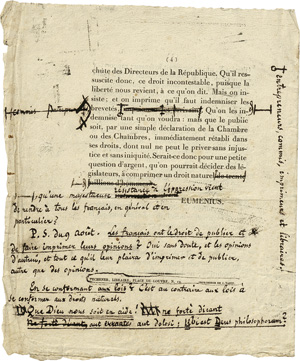 (4)
chute des Directeurs de la République. Qu'il res-
suscite donc, ce droit incontestable, puisque la
liberté nous revient, à ce qu'on dit. Mais on in-
siste ; et on imprime qu'il faut indemniser les
brevetés
Qu'on les in-
demnise tant qu'on voudra : mais que le public
soit, par une simple déclaration de la Chambre
ou des Chambres, immédiatement rétabli dans
ses droits, dont nul ne peut le priver sans injus-
tice et sans iniquité. Serait-ce donc pour une petite
question d'argent, qu'on pourrait décider des lé-
gislateurs, à comprimer un droit naturel
qu'une majestueuse
résistance à l'oppression vient
de rendre à tous les français, en général et en
particulier ?
EUMENIUS.
P. S. Du 9 août. Les français ont le droit de publier et
de faire imprimer leurs opinions : Oui sans doute, et les opinions
d'autrui, et tout ce qu'il leur plaira d'imprimer et de publier,
autre que des opinions.
LIBRAIRE, PLACE DU LOUVRE, N.
En se conformant aux lois : C'est au contraire aux lois à
se conformer aux droits naturels.
Que Dieu nous soit en aide !
ne forte dicant
aut dolosi : Ubi est Deus philosophorum ?
entrepreneurs, commis, imprimeurs et libraires